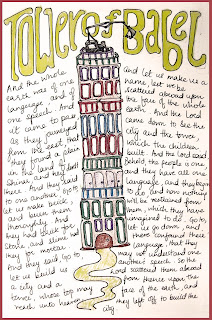 TOWER of BABEL
And the whole
earth was of one
language and of
one speech. And
it came to pass
as they journeyed
from the east that
they found a plain
in the land of
Shinar and they
there. And they said
to one another Go to
let us make brick
and burn them
thoroughly. And
they had brick for
stone and slime had
they for mortar.
And they said, Go to,
let us build us
a city and a
tower, whose top may
reach unto heaven
and let us make us a
name, lest we be
scattered abroad upon
the face of the whole
earth. And the Lord
came down to see the
city and the tower
which the children
built. And the Lord said
Behold the people is one
and they have all one
language, and they begin
to do and now nothing
will be restrained from
them, which they have
imagined to do. Go to,
let us go down, and
there confound their
language, that they
may not understand one
another's speech. So the
Lord scattered them abroad
from thence upon the
face of the earth, and
they left off to build the
city